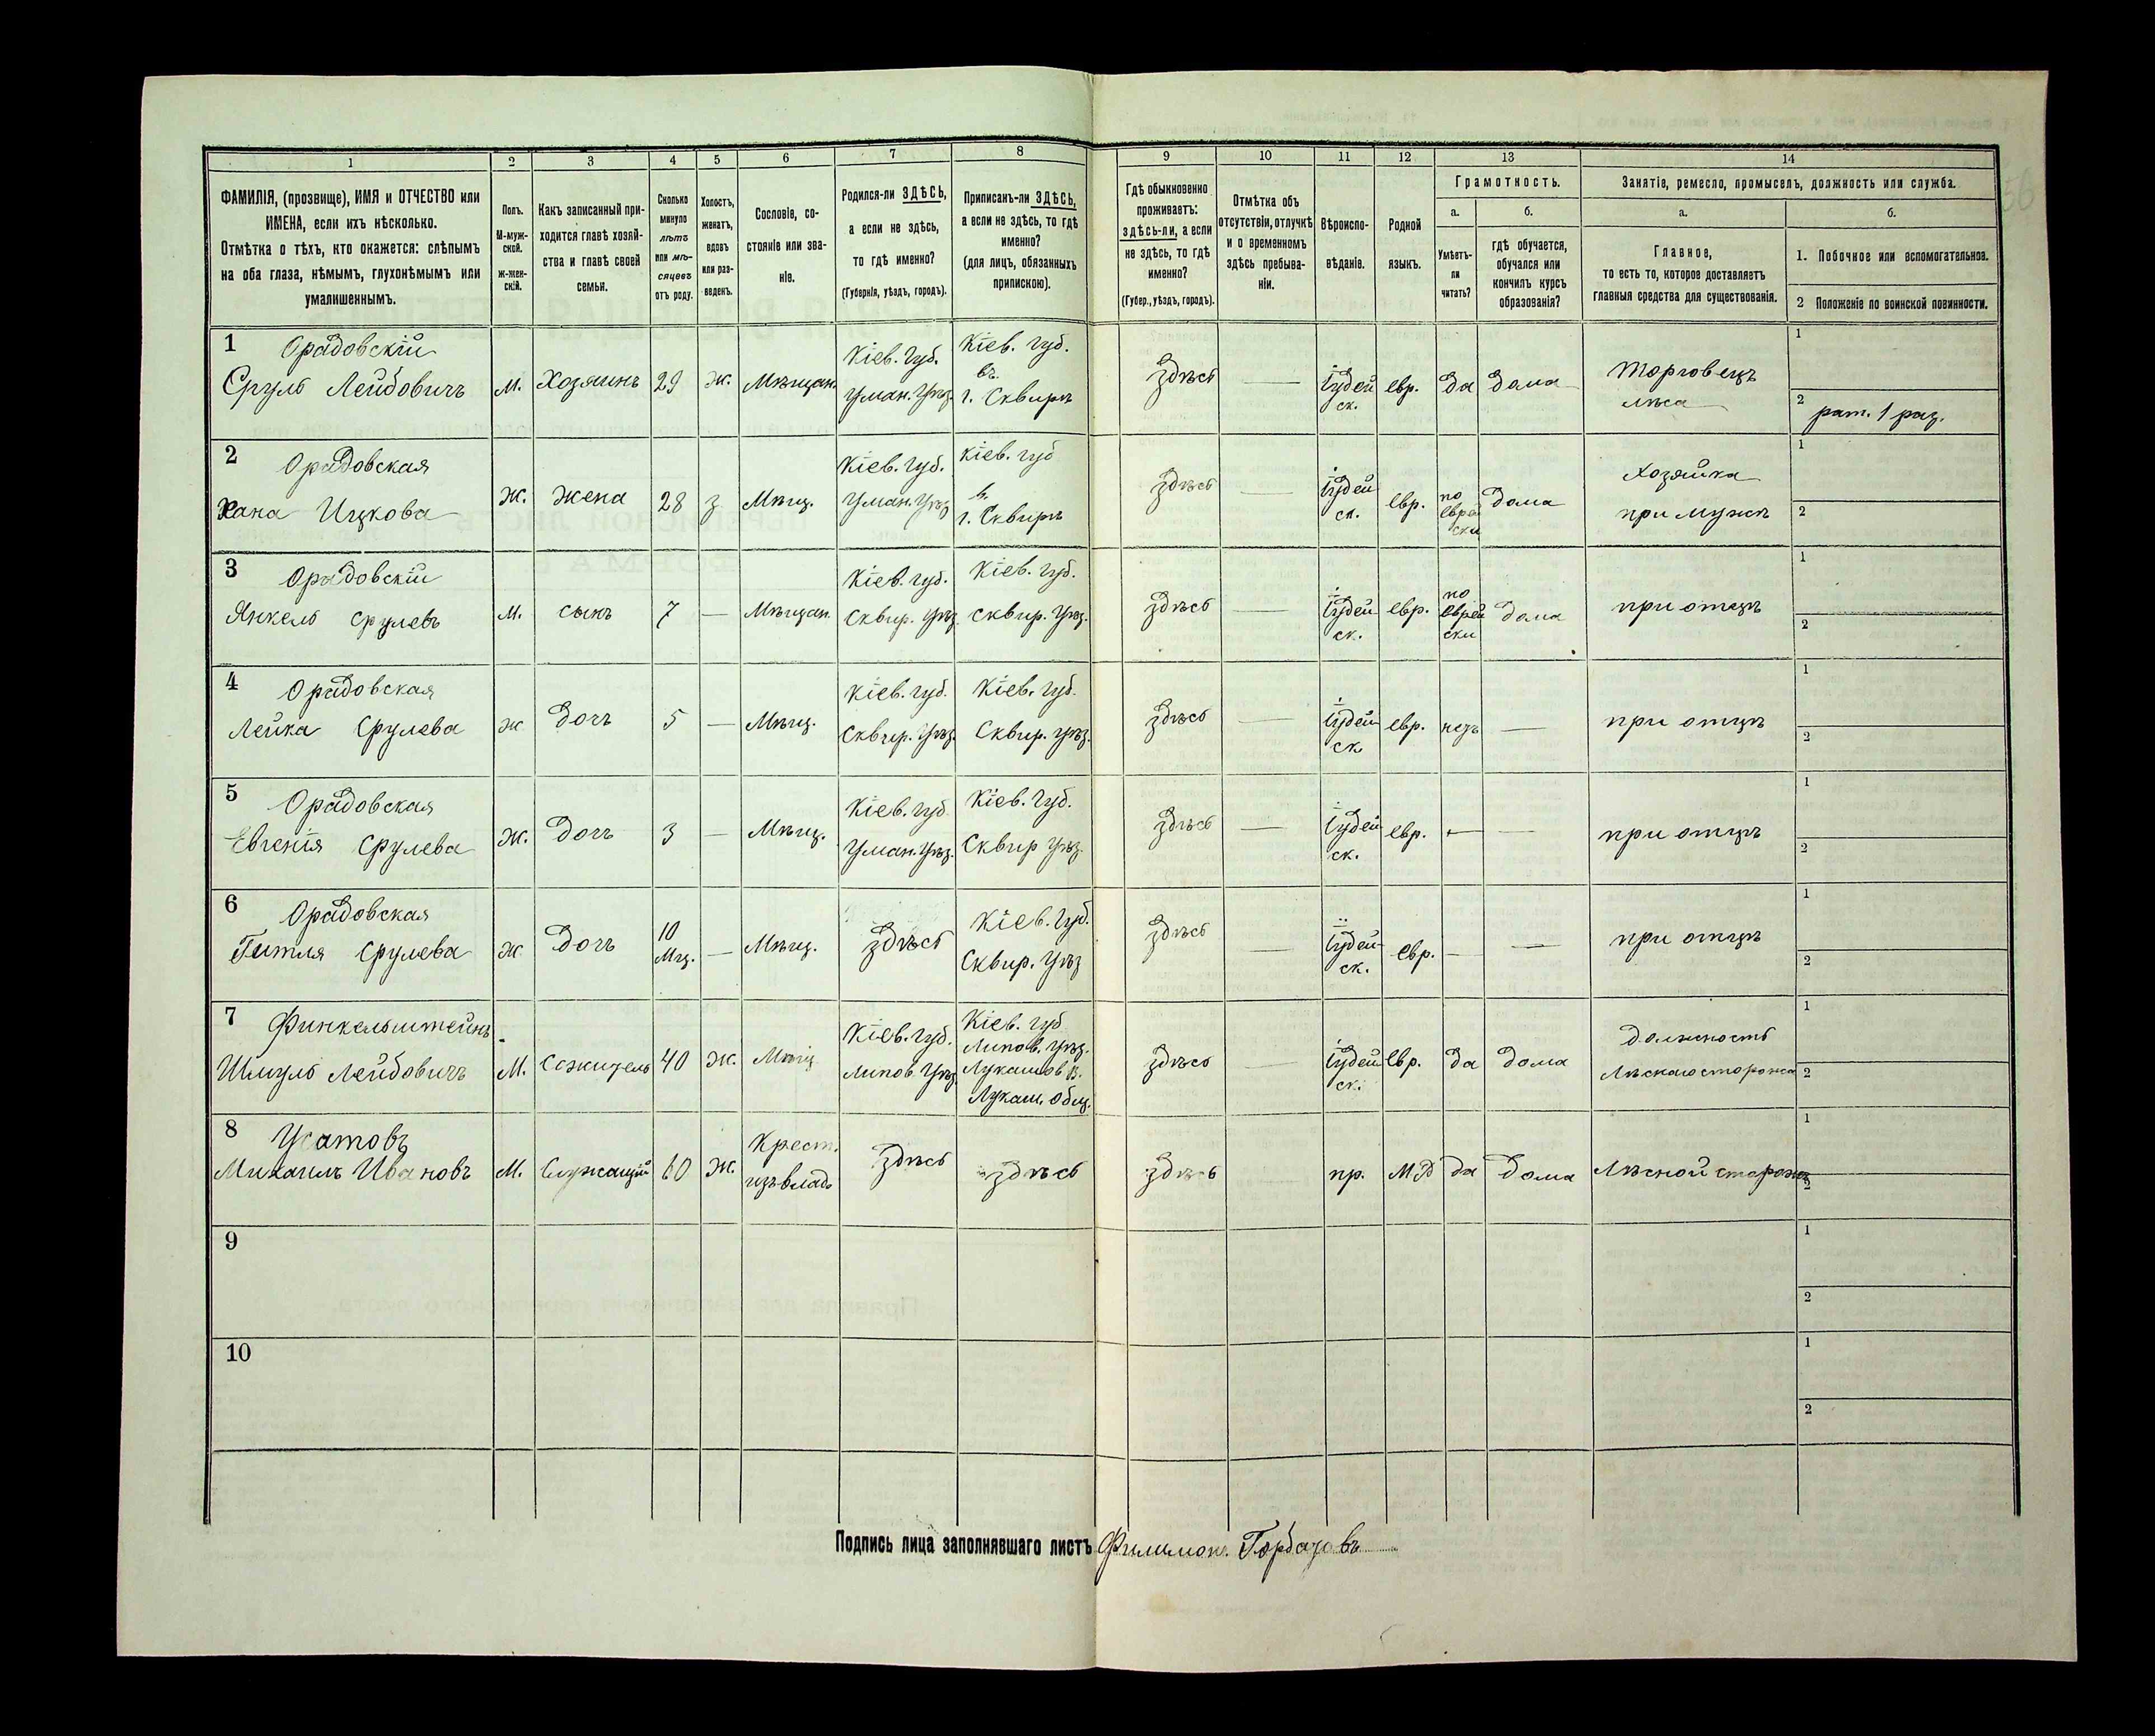 1 2 3 4 5 6 7 8 9 10 11 12 13 14
ФАМИЛІЯ, (прозвище), ИМЯ и ОТЧЕСТВО или
ИМЕНА, если ихъ нѣсколько.
Отмѣтка о тѣхъ, кто окажется: слѣпымъ
на оба глаза, нѣмымъ, глухонѣмымъ или
умалишеннымъ.
Полъ.
М-муж-
ской.
Ж-жен-
скій.
Какъ записанный при-
ходится главѣ хозяй-
ства и главѣ своей
семьи.
Сколько
минуло
лѣтъ
или мѣ-
сяцевъ
отъ роду.
Холостъ,
женатъ,
вдовъ
или раз-
веденъ.
Сословіе, со-
стояніе или зва-
ніе.
Родился-ли ЗДѢСЬ,
а если не здѣсь,
то гдѣ именно?
(Губернія, уѣздъ, городъ).
Приписанъ-ли ЗДѢСЬ,
а если не здѣсь, то гдѣ
именно?
(для лицъ, обязанныхъ
припискою).
Гдѣ обыкновенно
проживаетъ:
здѣсь-ли, а если
не здѣсь, то гдѣ
именно?
(Губер., уѣздъ, городъ).
Отмѣтка объ
отсутствіи, отлучкѣ
и о временномъ
здѣсь пребыва-
ніи.
Вѣроиспо-
вѣданіе.
Родной
языкъ.
Грамотность.
а.
Умѣетъ-
ли
читать?
б.
гдѣ обучается,
обучался или
кончилъ курсъ
образованія?
Занятіе, ремесло, промыселъ, должность или служба.
а.
Главное,
то есть то, которое доставляетъ
главныя средства для существованія.
б.
1. Побочное или вспомогательное.
2 Положеніе по воинской повинности.
1 Орадовскій
Сруль Лейбовичъ
м.
Хозяинъ
29
ж.
Мѣщан.
Кіев. Губ.
Уман. Уѣз.
Кіев. губ.
въ
г. Сквирѣ
Здѣсь
—
Іудей
ск.
евр.
Да
Дома
Торговецъ
лѣса
1
2 рат. 1 раз.
2 Орадовская
Хана Ицкова
ж.
жена
28
з
Мѣщ.
Кіев. Губ.
Уман. Уѣз
Кіев. губ
в.
г. Сквирѣ
здѣсь
—
Іудей
ск.
евр.
по
еврей
ски
дома
Хозяйка
при мужѣ
1
2
3 Орадовскій
Янкель Срулевъ
м.
сынъ
7
—
Мѣщан.
Кіев. губ.
Сквир. Уѣз.
Кіев. губ.
Сквир. Уѣз.
здѣсь
—
Іудей
ск.
евр.
по
еврей
ски
дома
при отцѣ
1
2
4 Орадовская
Лейка Срулева
ж
дочь
5
—
Мѣщ.
Кіев. губ.
Сквир. Уѣз.
Кіев. губ.
Сквир. Уѣз.
здѣсь
—
Іудей
ск
евр.
нетъ
—
при отцѣ
1
2
5 Орадовская
Евгенія Срулева
ж.
дочь
3
—
Мѣщ.
Кіев. губ.
Уман. Уѣз.
Кіев. Губ.
Сквир Уѣз.
здѣсь
—
Іудей
ск.
евр.
—
—
при отцѣ
1
2
6 Орадовская
Гитля Срулева
ж
дочь
10
Мц.
—
Мѣщ.
здѣсь
Кіев. Губ.
Сквир. Уѣз
здѣсь
—
Іудей-
ск.
евр.
—
—
при отцѣ
1
2
7 Финкельштейнъ
Шмуль Лейбовичъ
м.
Сожитель
40
ж.
Мѣщ
Кіев. губ.
Липов. Уѣз
Кіев. губ
Липов. Уѣз.
Лукашов в.
Лукаш. общ.
здѣсь
—
Іудей
ск.
евр.
да
дома
Должность
Лѣскаго сторожа
1
2
8 Усатовъ
Михаилъ Ивановъ
м.
Служащій
60
ж.
Крест.
изъ влад.
здѣсь
здѣсь
здѣсь
—
пр.
МР
да
дома
Лѣсной сторожъ
1
2
9
1
2
10
1
2
Подпись лица заполнявшаго листъ Филимон.